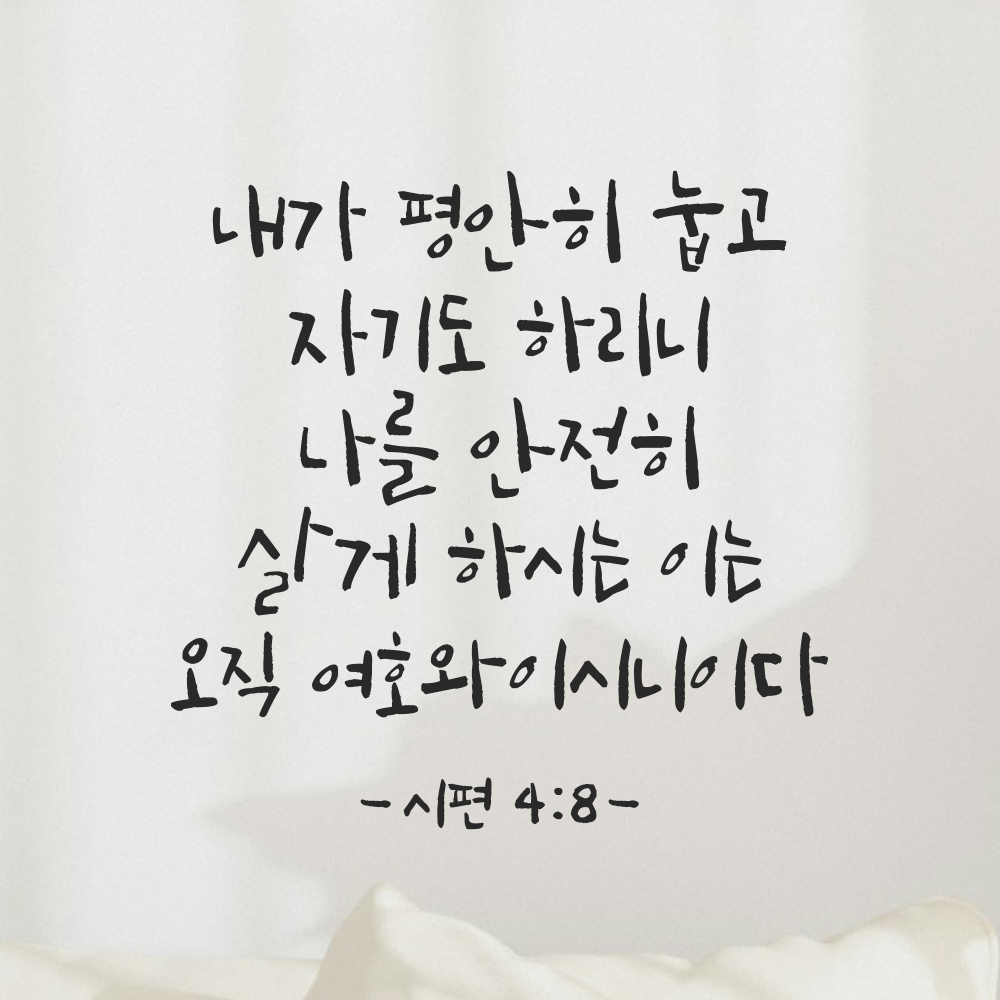 내가 평안히 눕고
자기도 하리니
나를 안전히
살게 하시는 이는
오직 여호와이시니이다
-시편 4:8-